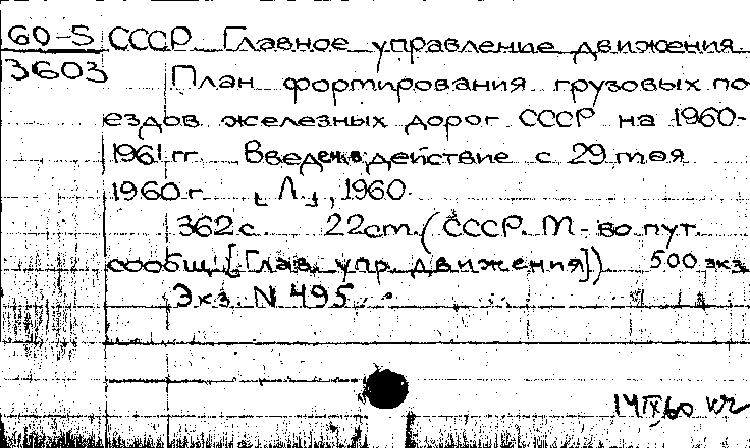 60-5 СССР. Главное управление движения.
3603 План формирования грузовых по
ездов железных дорог СССР на 1960-
1961 гг. Введен в действие с 29 мая
1960 г. [Л.], 1960.
362 с. 22 cm. (СССР. М-во пут.
сообщ. [Глав. упр. движения]). 500 экз.
Экз. N 495.
14 IX 60